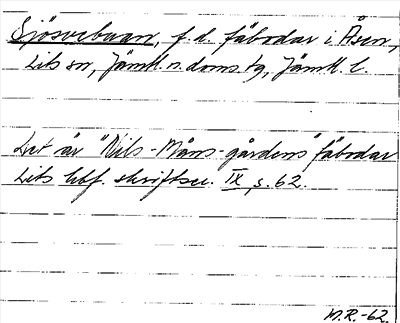 Sjösvebuan, f.d. fäbodar i Åsen,
Lits sn, Jämtl. n. doms. tg, Jämtl. l.
Det är "Nils-Måns-gårdens" fäbodar
Lits hbf. skriftser. IX, s. 62.
N.R.-62.